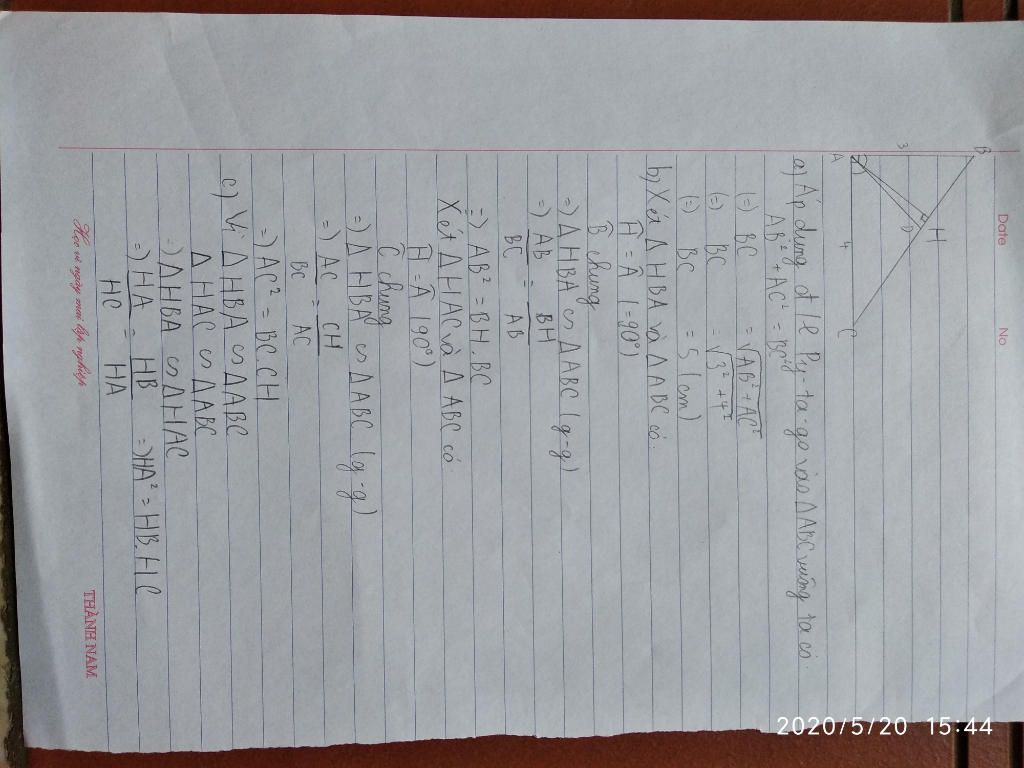 Date No
B
3
H
D
A
4
C
a) Áp dụng đ/lí Py-ta-go vào ΔABC vuông ta có:
AB² + AC² = BC²
(=) BC = √AB² + AC²
(=) BC = √3² + 4²
(=) BC = 5 (cm)
b) Xét Δ HBA và Δ ABC có:
Ĥ = Â (=90°)
B̂ chung
=) Δ HBA ∽ Δ ABC (g-g)
=) AB/BC = BH/AB
=) AB² = BH.BC
Xét Δ HAC và Δ ABC có
Ĥ = Â (90°)
Ĉ chung
=) Δ HBA ∽ Δ ABC (g-g)
=) AC/BC = CH/AC
=) AC² = BC.CH
c) Vì Δ HBA ∽ Δ ABC
Δ HAC ∽ Δ ABC
=) Δ HBA ∽ Δ HAC
=) HA/HC = HB/HA =) HA² = HB.HC
Học vì ngày mai lập nghiệp THÀNH NAM
2020/5/20 15:44